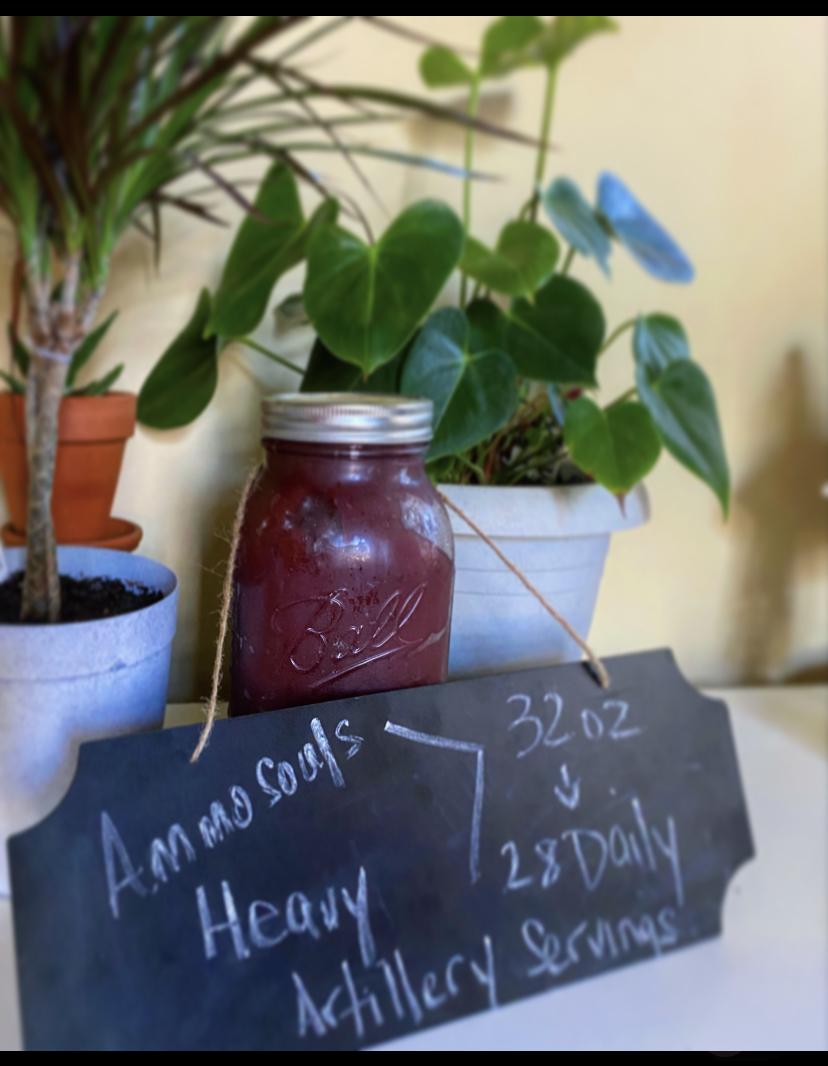 Ball
Ammo Souls
Heavy
Artillery
32 oz
↓
28 Daily
Servings